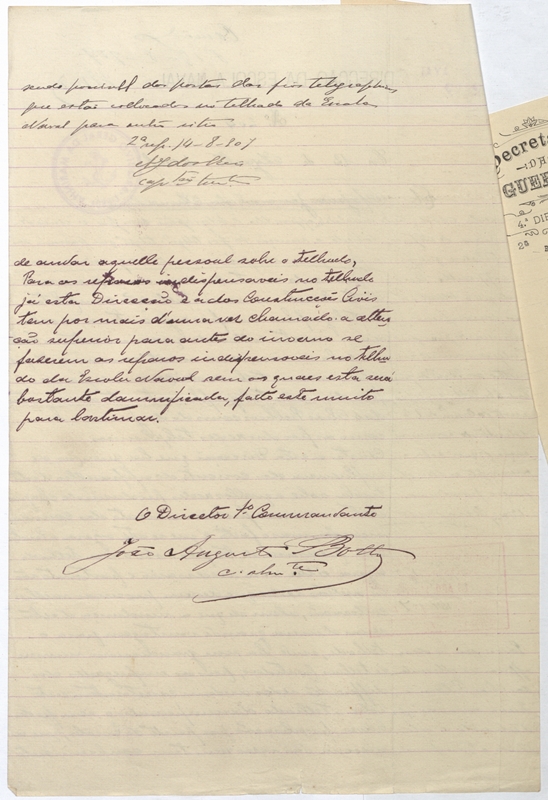 sendo possivel dos postes dos fios telegraphicos,
que estão collocados no telhado da Escola
Naval para outro sitio
2ª rep. 14-8-807
cap. tent.
de andar aquelle pessoal sobre o telhado,
Para os reparos indispensaveis no telhado
já esta Direcção e a das Construcções Civis
tem por mais d'uma vez chamado a atten-
ção superior para antes do inverno se
fazerem os reparos indispensaveis no telha
do da Escola Naval sem os quaes esta será
bastante damnificada, facto este muito
para lastimar.
O Director 1º Commandante
João Augusto Botto
c. alm.te
Secreta
DA
GUER
4.ª DIR
2ª